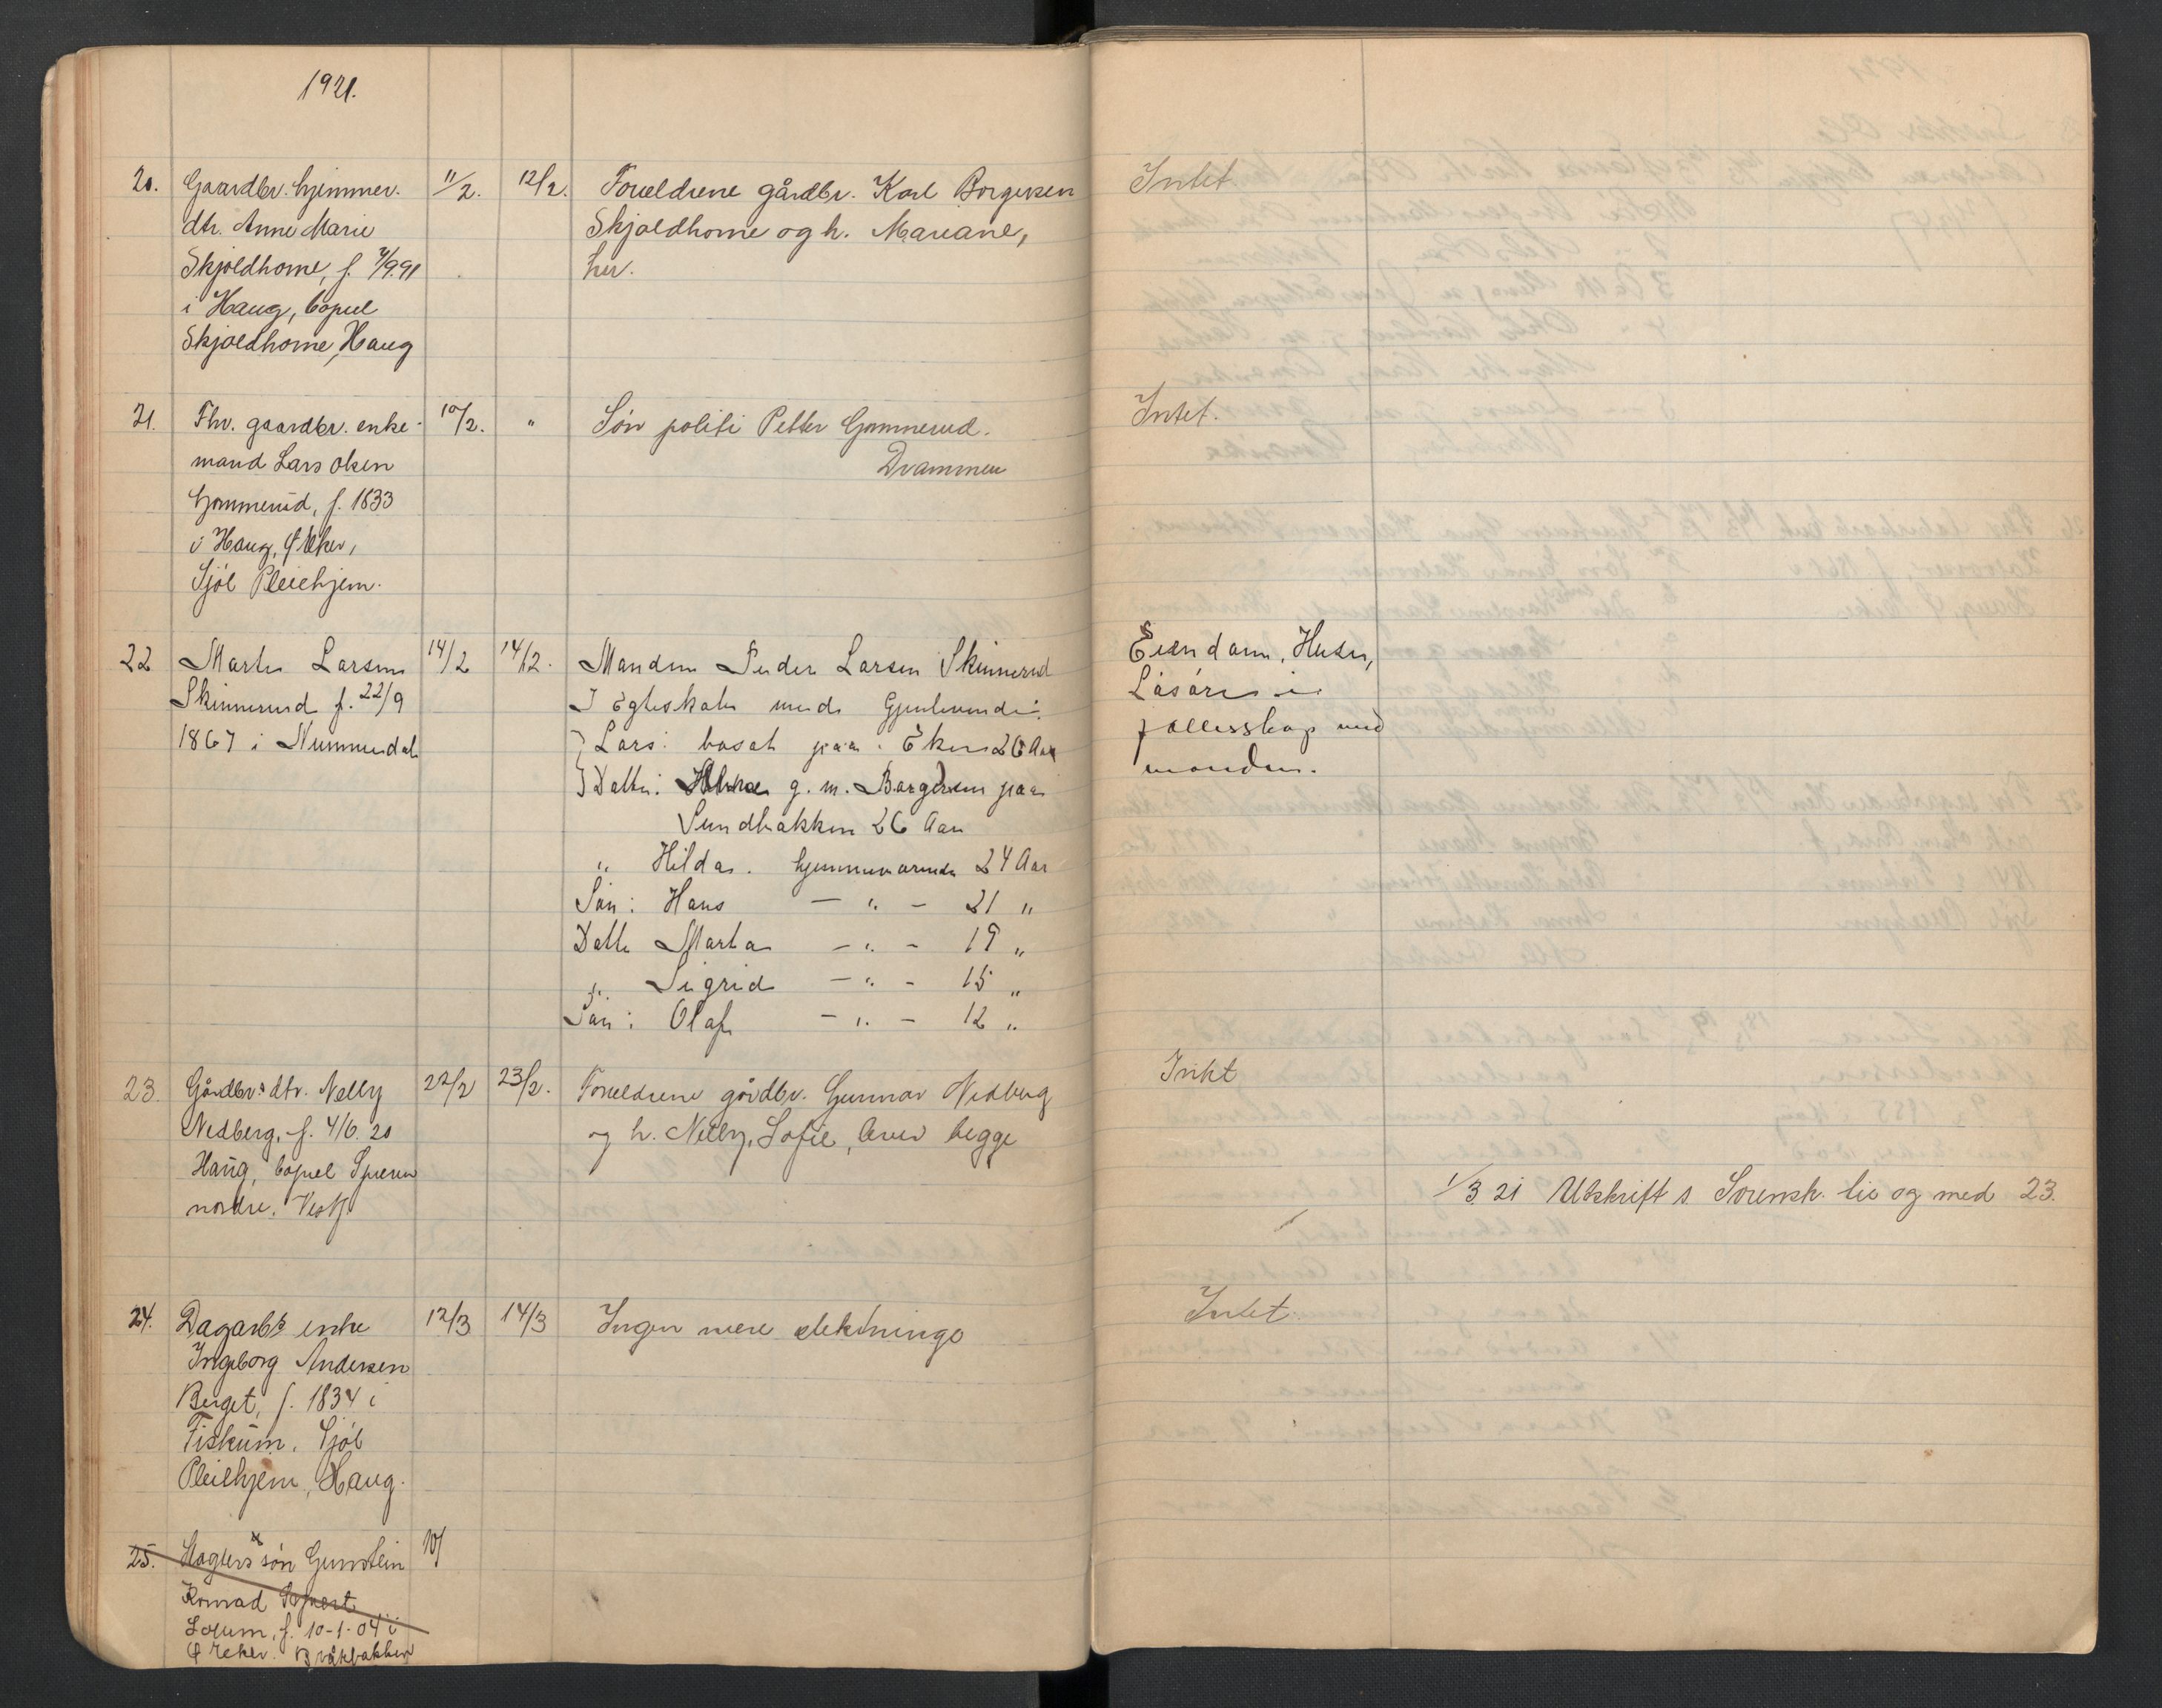 1921.
20. Gaardbr. hjemmev. 11/2. 12/2. Forældrene gårdbr. Karl Borgersen Intet.
dtr. Anne Marie Skjoldhorne og h. Mariane,
Skjoldhorne, f. 4/9.91 her.
i Haug, bopæl
Skjoldhorne, Haug
21. Fhv. gaardbr. enke- 10/2. " Søn politi Petter Gommerud. Intet.
mand Lars Olsen Drammen
Gommerud, f. 1833
i Haug, Ø Eker,
Sjøl Pleiehjem.
22 Marte Larsen 14/2 14/2. Manden Peder Larsen Skinnerud Eiendom, Huser,
Skinnerud f. 22/9 I Egteskab med Gjenlevende: Løsøre i
1867 i Nummedal Lars: bosat paa Eker 26 Aar fællesskap med
Datter: g. m. Borgersen paa manden.
Sundbakken 26 Aar
" Hilda. hjemmeværende 24 Aar
Søn: Hans — " — 21 "
Datter Marta — " — 19 "
" Sigrid — " — 15 "
Søn: Olaf — " — 12 "
23. Gårdbr.s dtr. Nelly 22/2 23/2. Forældrene gårdbr. Gunnar Nedberg Intet
Nedberg, f. 4/6. 20 og h. Nelly, Sofie, lever begge
Haug, bopæl Speren 1/3 21 Utskrift s. Sorensk. lie og med 23.
nordre, Vestf.
24. Dagarb.s enke 12/3 14/3 Ingen nære slektninge Intet.
Ingeborg Andersen
Berget, f. 1834 i
Fiskum. Sjøl
Pleiehjem, Haug.
25. søn Gunstein 10/
Konrad
f. 10-1-04 i
Ø Eker.